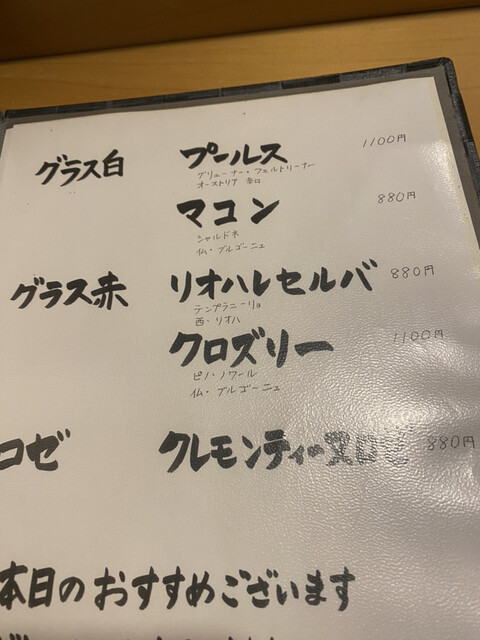 グラス白 プールス 1100円
グリューナー・フェルトリーナー
オーストリア 辛口
マコン 880円
シャルドネ
仏・ブルゴーニュ
グラス赤 リオハレセルバ 880円
テンプラニーリョ
西・リオハ
クロズリー 1100円
ピノ・ノワール
仏・ブルゴーニュ
ロゼ クレモンティーヌロゼ 880円
本日のおすすめございます